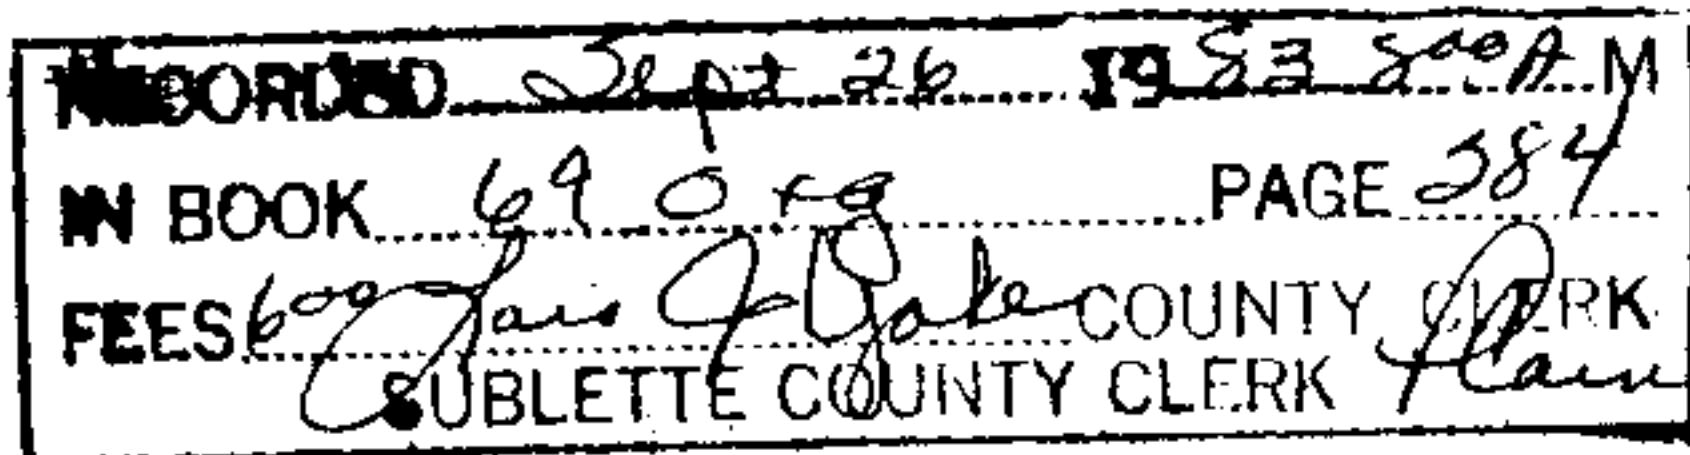 RECORDED Sept 26 1983 8:00 A.M
IN BOOK 69 O+g PAGE 384
FEES 6.00 COUNTY CLERK
SUBLETTE COUNTY CLERK